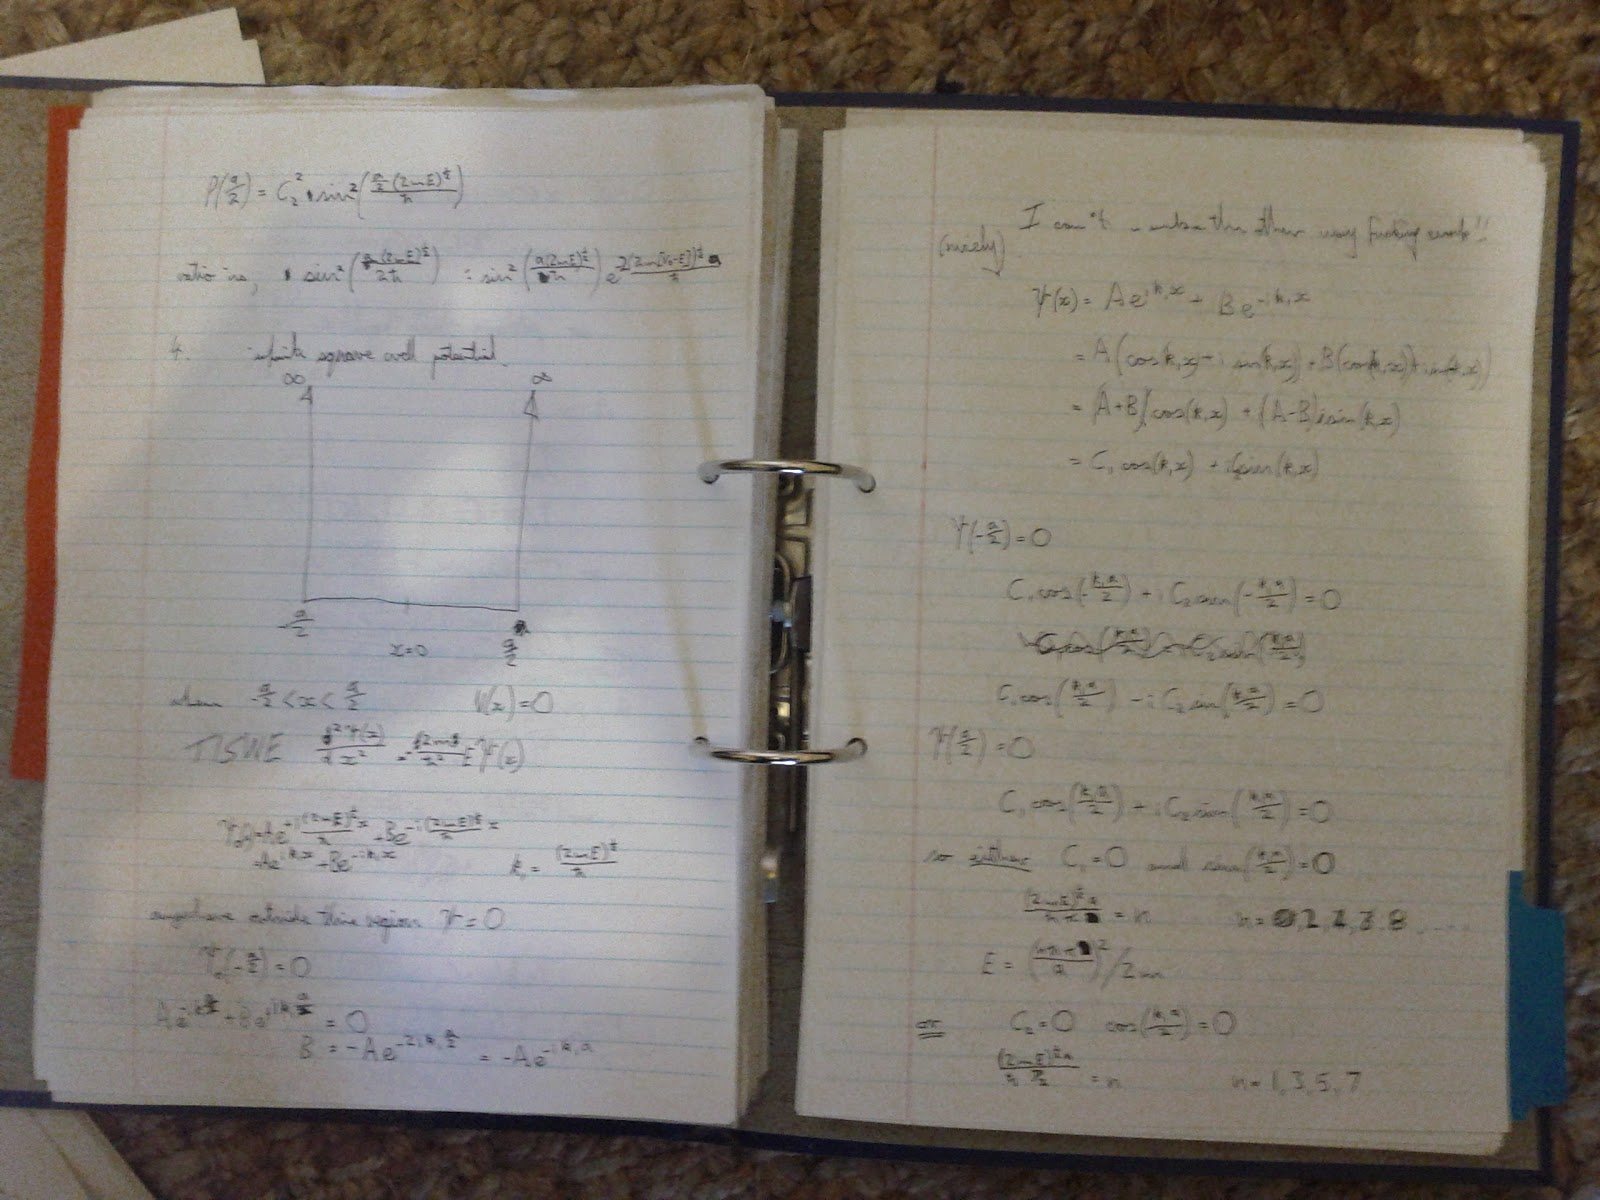 P(a/2) = C₂² sin²(a/2 (2mE)^½ / ħ)
ratio is, sin²(a(2mE)^½ / 2ħ) : sin²(a(2mE)^½ / ħ) e^
4. infinite square well potential.
∞ ∞
-a/2 x=0 a/2
when -a/2 < x < a/2 V(x) = 0
TISWE d²Ψ(x)/dx² = -2m/ħ² E Ψ(x)
Ψ₀(x) = Ae^{+i(2mE)^½ x/ħ} + Be^{-i(2mE)^½ x/ħ}
= Ae^{ik₁x} + Be^{-ik₁x} k₁ = (2mE)^½ / ħ
anywhere outside this region Ψ = 0
Ψ₀(-a/2) = 0
Ae^{-ik a/2} + Be^{ik₁ a/2} = 0
B = -Ae^{-2ik₁ a/2} = -Ae^{-ik₁a}
I can't make the other way fucking work!!
(nicely)
Ψ(x) = Ae^{ik₁x} + Be^{-ik₁x}
= A(cos(k₁x) + i sin(k₁x)) + B(cos(k₁x) + i sin(-k₁x))
= (A+B)cos(k₁x) + (A-B)i sin(k₁x)
= C₁cos(k₁x) + iC₂sin(k₁x)
Ψ(-a/2) = 0
C₁cos(-k₁a/2) + iC₂sin(-k₁a/2) = 0
C₁cos(k₁a/2) - iC₂sin(k₁a/2) = 0
Ψ(a/2) = 0
C₁cos(k₁a/2) + iC₂sin(k₁a/2) = 0
so either C₁=0 and sin(k₁a/2) = 0
(2mE)^½ a / = n n =
E = /2m
or C₂=0 cos(k₁a/2) = 0
(2mE)^½ a / ħ π/2 = n n = 1, 3, 5, 7